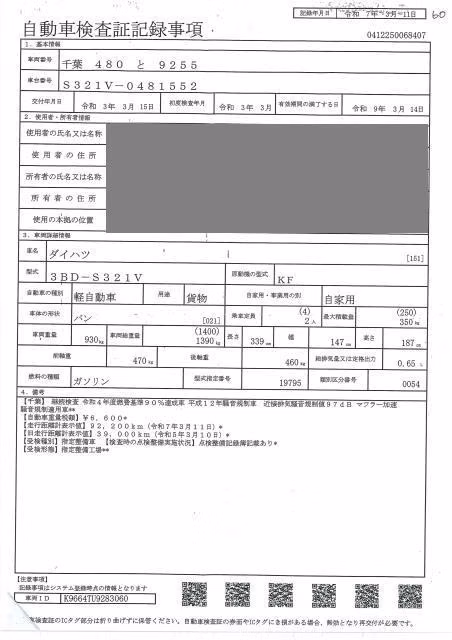 記録年月日 令和 7年 3月 11日
60
自動車検査証記録事項
0412250068407
1．基本情報
車両番号 千葉 480 と 9255
車台番号 S321V-0481552
交付年月日 令和 3年 3月 15日 初度検査年月 令和 3年 3月 有効期間の満了する日 令和 9年 3月 14日
2．使用者・所有者情報
使用者の氏名又は名称
使用者の住所
所有者の氏名又は名称
所有者の住所
使用の本拠の位置
3．車両詳細情報
車名 ダイハツ [151]
型式 3BD-S321V 原動機の型式 KF
自動車の種別 軽自動車 用途 貨物 自家用・事業用の別 自家用
車体の形状 バン [021] 乗車定員 (4) 2人 最大積載量 (250) 350kg
車両重量 930kg 車両総重量 (1400) 1390kg 長さ 339cm 幅 147cm 高さ 187cm
前軸重 470kg 後軸重 460kg 総排気量又は定格出力 0.65 L
燃料の種類 ガソリン 型式指定番号 19795 類別区分番号 0054
4．備考
【千葉】 継続検査 令和4年度燃費基準90％達成車 平成12年騒音規制車 近接排気騒音規制値97dB マフラー加速
騒音規制適用車**
【自動車重量税額】￥6,600*
【走行距離計表示値】92,200km（令和7年3月11日）*
【旧走行距離計表示値】39,000km（令和5年3月10日）*
【受検種別】指定整備車 【検査時の点検整備実施状況】点検整備記録簿記載あり*
【受検形態】指定整備工場**
【注意事項】
記録事項はシステム登録時点の情報となります
車両ID K9664TU9283060
検査証のICタグ部分は折り曲げずに保管ください。自動車検査証の券面やICタグにき損がある場合、無効となり再交付が必要です。